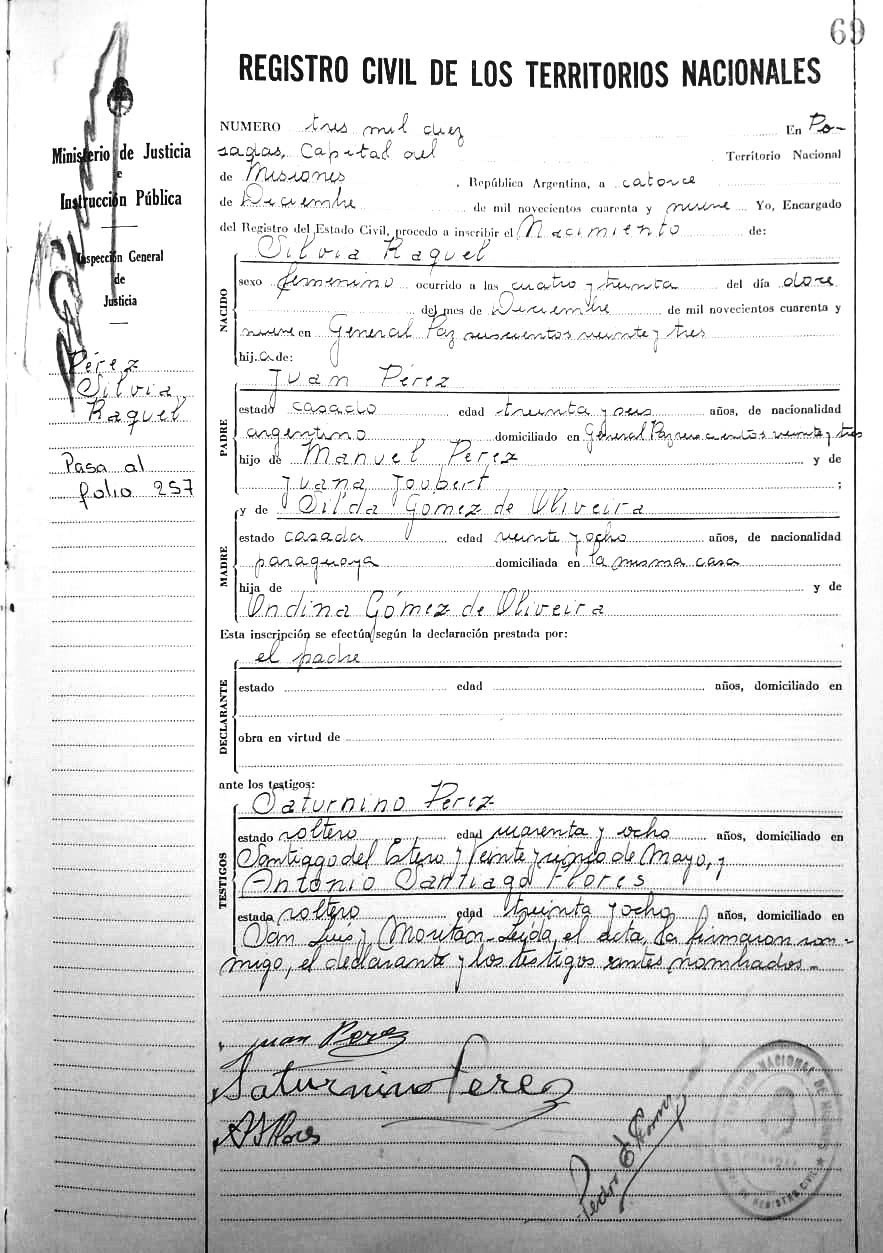 69
REGISTRO CIVIL DE LOS TERRITORIOS NACIONALES
Ministerio de Justicia
e
Instrucción Pública
Inspección General
de
Justicia
Pérez
Silvia
Raquel
Pasa al
folio 257
NUMERO tres mil diez En Po-
sadas, Capital del Territorio Nacional
de Misiones, República Argentina, a catorce
de Diciembre de mil novecientos cuarenta y nueve Yo, Encargado
del Registro del Estado Civil, procedo a inscribir el Nacimiento de:
NACIDO
Silvia Raquel
sexo femenino ocurrido a las cuatro y treinta del día doce
del mes de Diciembre de mil novecientos cuarenta y
nueve en General Paz veinte y tres
hij.a de:
PADRE
Juan Pérez
estado casado edad treinta y seis años, de nacionalidad
argentino domiciliado en General Paz veinte y tres
hijo de Manuel Pérez y de
Juana Joubert ;
MADRE
y de Gomez de Oliveira
estado casada edad veinte y ocho años, de nacionalidad
paraguaya domiciliada en la misma casa
hija de y de
Ondina Gómez de Oliveira
Esta inscripción se efectúa según la declaración prestada por:
DECLARANTE
el padre
estado edad años, domiciliado en
obra en virtud de
ante los testigos:
TESTIGOS
Saturnino Perez
estado soltero edad cuarenta y ocho años, domiciliado en
Santiago del Estero y Veinte y cinco de Mayo, y
Antonio Santiago Flores
estado soltero edad treinta y ocho años, domiciliado en
San Luis y Leida el acta, la firmaron con-
migo, el declarante y los testigos antes nombrados.-
Juan Perez
Saturnino Perez
A S Flores
Pedro